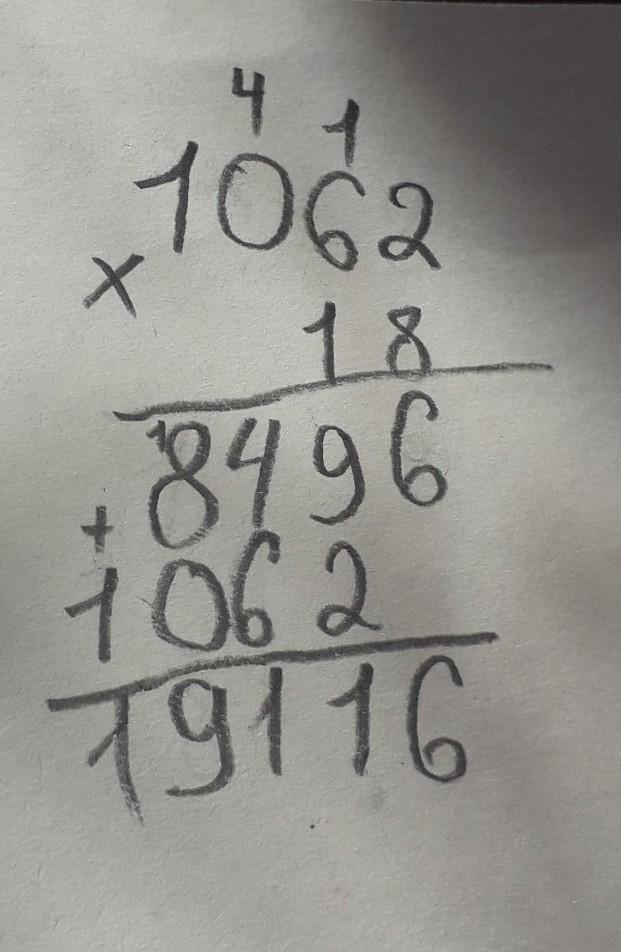 4 1
1062
×
18
1
8496
+
1062
19116